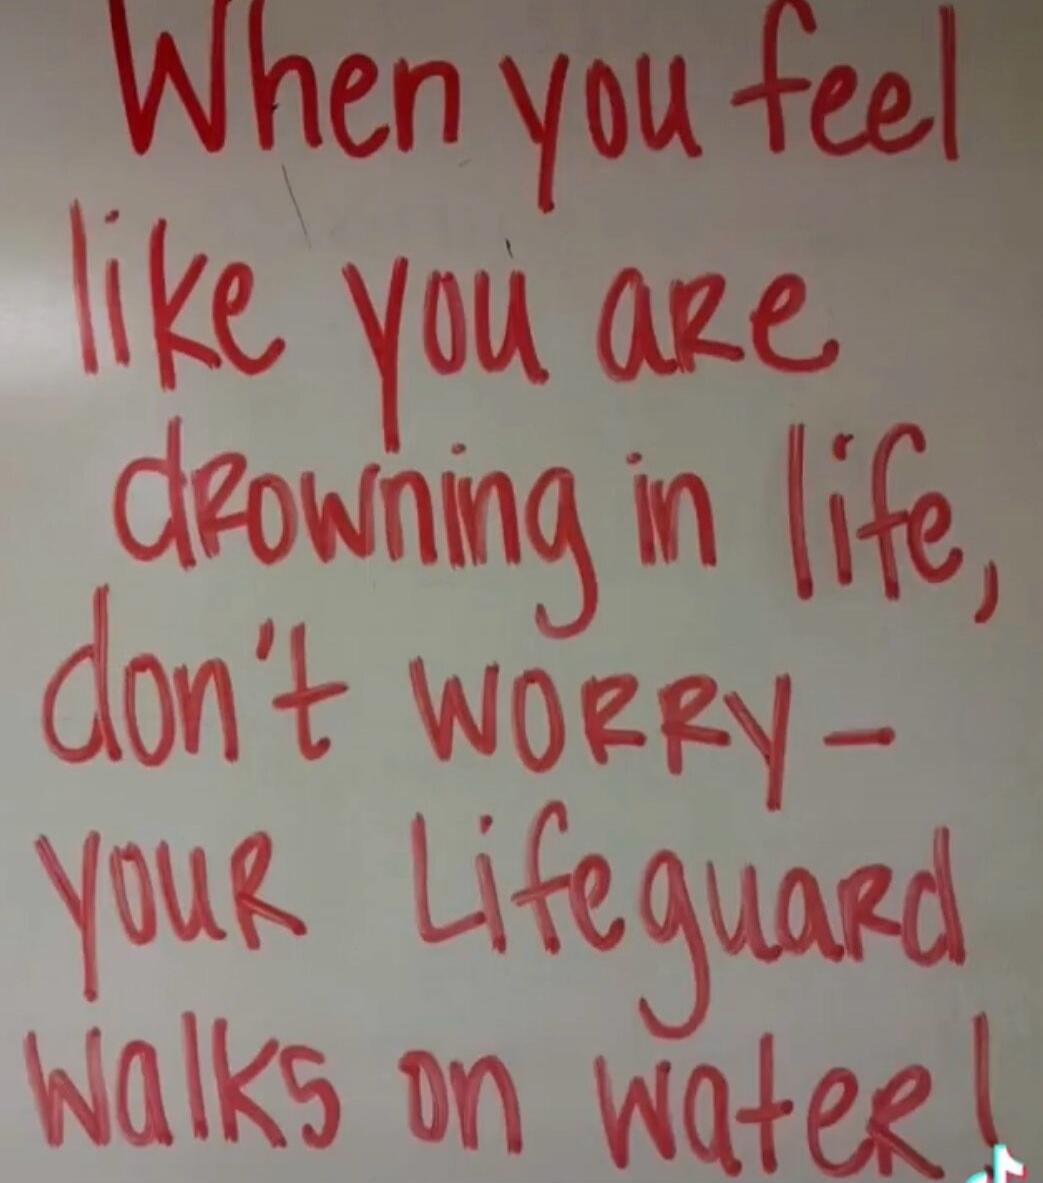 When you feel
like you are
drowning in life,
don't worry-
your Lifeguard
walks on water!